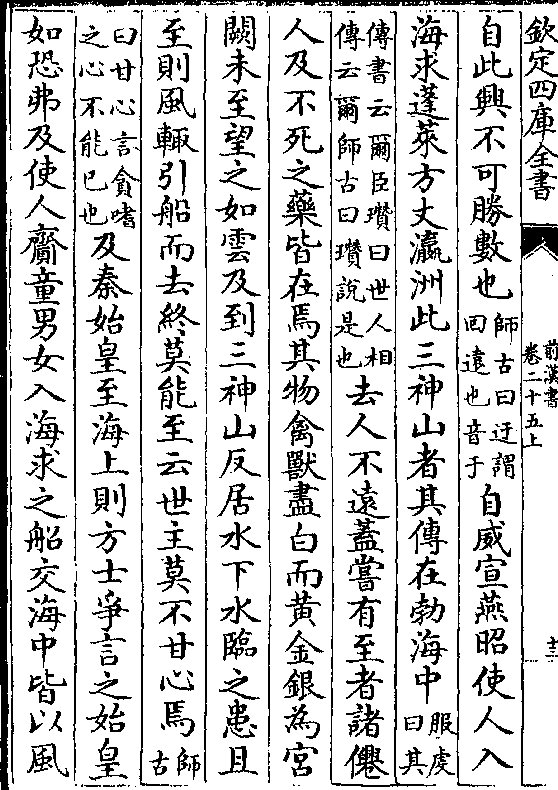 欽定四庫全書
前漢書
卷二十五上
十二
自此興不可勝數也師古曰迂謂
回遠也音于自威宣燕昭使人入
海求蓬萊方丈瀛洲此三神山者其傳在勃海中服虔
曰其
傳書云爾臣瓚曰世人相
傳云爾師古曰瓚說是也去人不遠蓋嘗有至者諸僊
人及不死之藥皆在焉其物禽獸盡白而黃金銀為宮
闕未至望之如雲及到三神山反居水下水臨之患且
至則風輒引船而去終莫能至云世主莫不甘心焉師
古
曰甘心言貪嗜
之心不能已也及秦始皇至海上則方士爭言之始皇
如恐弗及使人齎童男女入海求之船交海中皆以風